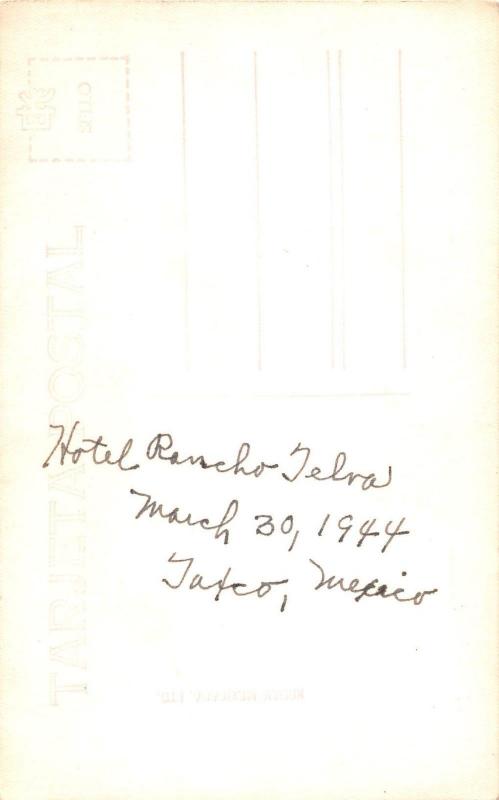 SELLO
TARJETA POSTAL
Hotel Rancho Telva
March 30, 1944
Taxco, Mexico